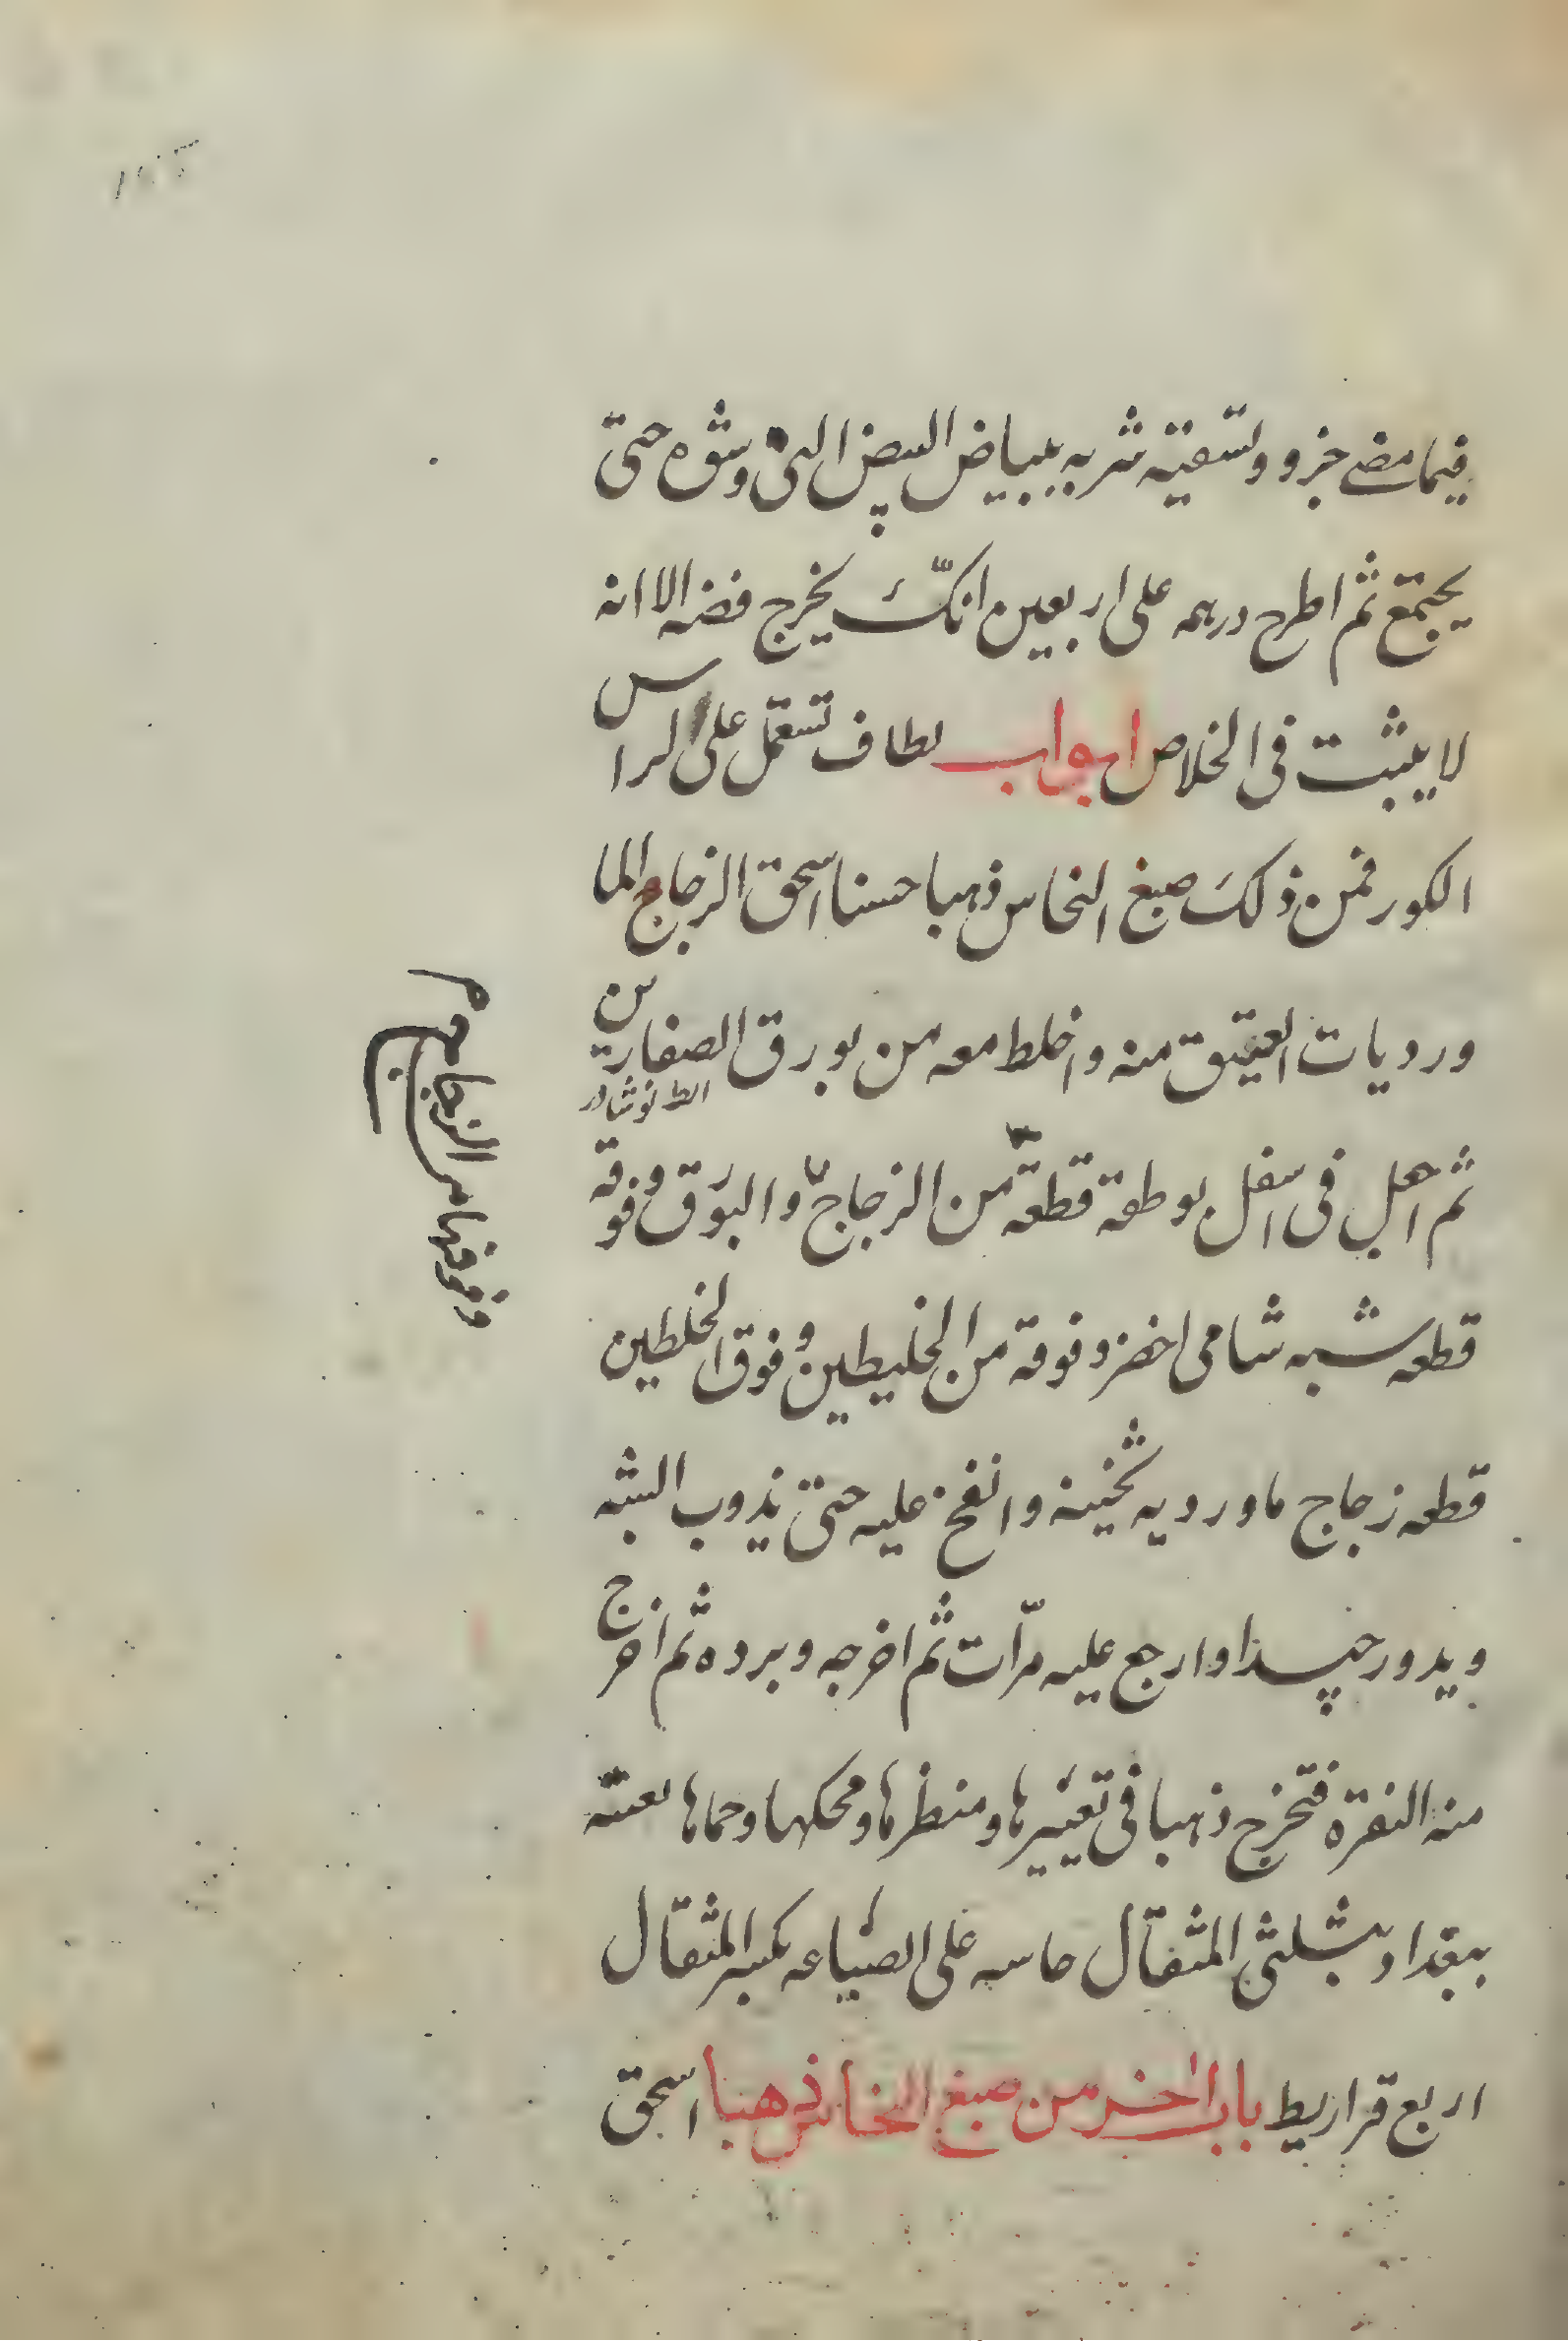 فيما مضى جزو وتسقيته شربه ببياض البيض التى وشوه حتى
يجتمع ثم اطرح درهمه على اربعين انك يخرج فضه الا انه
لا يثبت فى الخلاص ابواب لطاف تستعمل على الراس
الكور فمن ذلك صبغ النحاس ذهبا حسنا اسحق الزجاج الما
ورديات العتيق منه واخلط معه من بورق الصفارين
نوشادر
ثم اجعل فى اسفل بوطقة قطعة من الزجاج والبورق وفوقه
قطعه شبه شامى اخضر وفوقه من الخليطين وفوق الخلطين
قطعه زجاج ماورديه ثخينه وانفخ عليه حتى يذوب الشبه
ويدور جيدا وارجع عليه مرّات ثم اخرجه وبرده ثم اخرج
منه النقرة فتخرج ذهبا فى تعييرها ومنظرها ومحكها وحماها
ببغداد بثلثى المثقال على الصياعه بكسر المثقال
اربع قراريط باب اخر من صبغ النحاس ذهبا اسحق
وفوقها من الزجاج